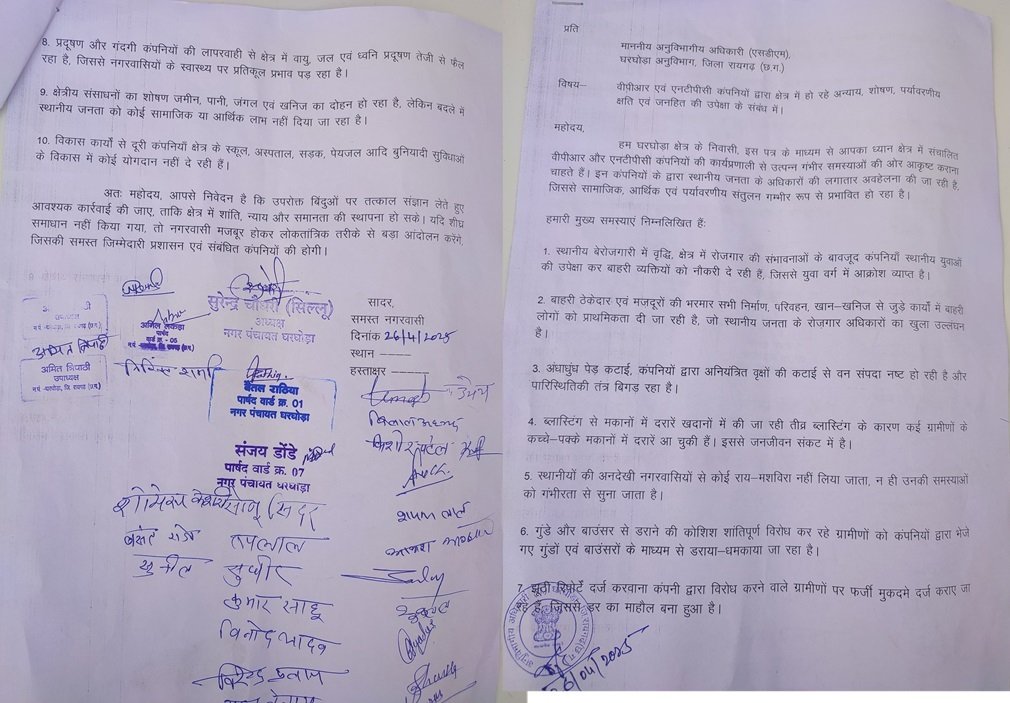 प्रति
माननीय अनुविभागीय अधिकारी (एसडीएम),
घरघोड़ा अनुविभाग, जिला रायगढ़ (छ.ग.)
विषय– वीपीआर एवं एनटीपीसी कंपनियों द्वारा क्षेत्र में हो रहे अन्याय, शोषण, पर्यावरणीय
क्षति एवं जनहित की उपेक्षा के संबंध में।
महोदय,
हम घरघोड़ा क्षेत्र के निवासी, इस पत्र के माध्यम से आपका ध्यान क्षेत्र में संचालित
वीपीआर और एनटीपीसी कंपनियों की कार्यप्रणाली से उत्पन्न गंभीर समस्याओं की ओर आकृष्ट कराना
चाहते हैं। इन कंपनियों के द्वारा स्थानीय जनता के अधिकारों की लगातार अवहेलना की जा रही है,
जिससे सामाजिक, आर्थिक एवं पर्यावरणीय संतुलन गम्भीर रूप से प्रभावित हो रहा है।
हमारी मुख्य समस्याएं निम्नलिखित हैं:
1. स्थानीय बेरोजगारी में वृद्धि, क्षेत्र में रोजगार की संभावनाओं के बावजूद कंपनियाँ स्थानीय युवाओं
की उपेक्षा कर बाहरी व्यक्तियों को नौकरी दे रही हैं, जिससे युवा वर्ग में आक्रोश व्याप्त है।
2. बाहरी ठेकेदार एवं मजदूरों की भरमार सभी निर्माण, परिवहन, खान–खनिज से जुड़े कार्यों में बाहरी
लोगों को प्राथमिकता दी जा रही है, जो स्थानीय जनता के रोज़गार अधिकारों का खुला उल्लंघन
है।
3. अंधाधुंध पेड़ कटाई, कंपनियों द्वारा अनियंत्रित वृक्षों की कटाई से वन संपदा नष्ट हो रही है और
पारिस्थितिकी तंत्र बिगड़ रहा है।
4. ब्लास्टिंग से मकानों में दरारें खदानों में की जा रही तीव्र ब्लास्टिंग के कारण कई ग्रामीणों के
कच्चे-पक्के मकानों में दरारें आ चुकी हैं। इससे जनजीवन संकट में है।
5. स्थानीयों की अनदेखी नगरवासियों से कोई राय-मशविरा नहीं लिया जाता, न ही उनकी समस्याओं
को गंभीरता से सुना जाता है।
6. गुंडे और बाउंसर से डराने की कोशिश शांतिपूर्ण विरोध कर रहे ग्रामीणों को कंपनियों द्वारा भेजे
गए गुंडों एवं बाउंसरों के माध्यम से डराया-धमकाया जा रहा है।
7. झूठी रिपोर्टें दर्ज करवाना कंपनी द्वारा विरोध करने वाले ग्रामीणों पर फर्जी मुकदमे दर्ज कराए जा
रहे हैं, जिससे डर का माहौल बना हुआ है।
8. प्रदूषण और गंदगी कंपनियों की लापरवाही से क्षेत्र में वायु, जल एवं ध्वनि प्रदूषण तेजी से फैल
रहा है, जिससे नगरवासियों के स्वास्थ्य पर प्रतिकूल प्रभाव पड़ रहा है।
9. क्षेत्रीय संसाधनों का शोषण जमीन, पानी, जंगल एवं खनिज का दोहन हो रहा है, लेकिन बदले में
स्थानीय जनता को कोई सामाजिक या आर्थिक लाभ नहीं दिया जा रहा है।
10. विकास कार्यों से दूरी कंपनियाँ क्षेत्र के स्कूल, अस्पताल, सड़क, पेयजल आदि बुनियादी सुविधाओं
के विकास में कोई योगदान नहीं दे रही हैं।
अतः महोदय, आपसे निवेदन है कि उपरोक्त बिंदुओं पर तत्काल संज्ञान लेते हुए
आवश्यक कार्रवाई की जाए, ताकि क्षेत्र में शांति, न्याय और समानता की स्थापना हो सके। यदि शीघ्र
समाधान नहीं किया गया, तो नगरवासी मजबूर होकर लोकतांत्रिक तरीके से बड़ा आंदोलन करेंगे,
जिसकी समस्त जिम्मेदारी प्रशासन एवं संबंधित कंपनियों की होगी।
सादर,
समस्त नगरवासी
दिनांक 26/4/2025
स्थान ———
हस्ताक्षर ———
सुरेन्द्र चौधरी (सिल्लू)
अध्यक्ष
नगर पंचायत घरघोड़ा
उपाध्यक्ष
अमित त्रिपाठी
अमित त्रिपाठी
उपाध्यक्ष
पार्षद
वार्ड क्र. - 05
बैतल राठिया
पार्षद वार्ड क्र. 01
नगर पंचायत घरघोड़ा
संजय डोंडे
पार्षद वार्ड क्र. 07
नगर पंचायत घरघोड़ा
तपलाल
सुनील
सुधीर
कुमार साहू
विनोद यादव
/04/2025